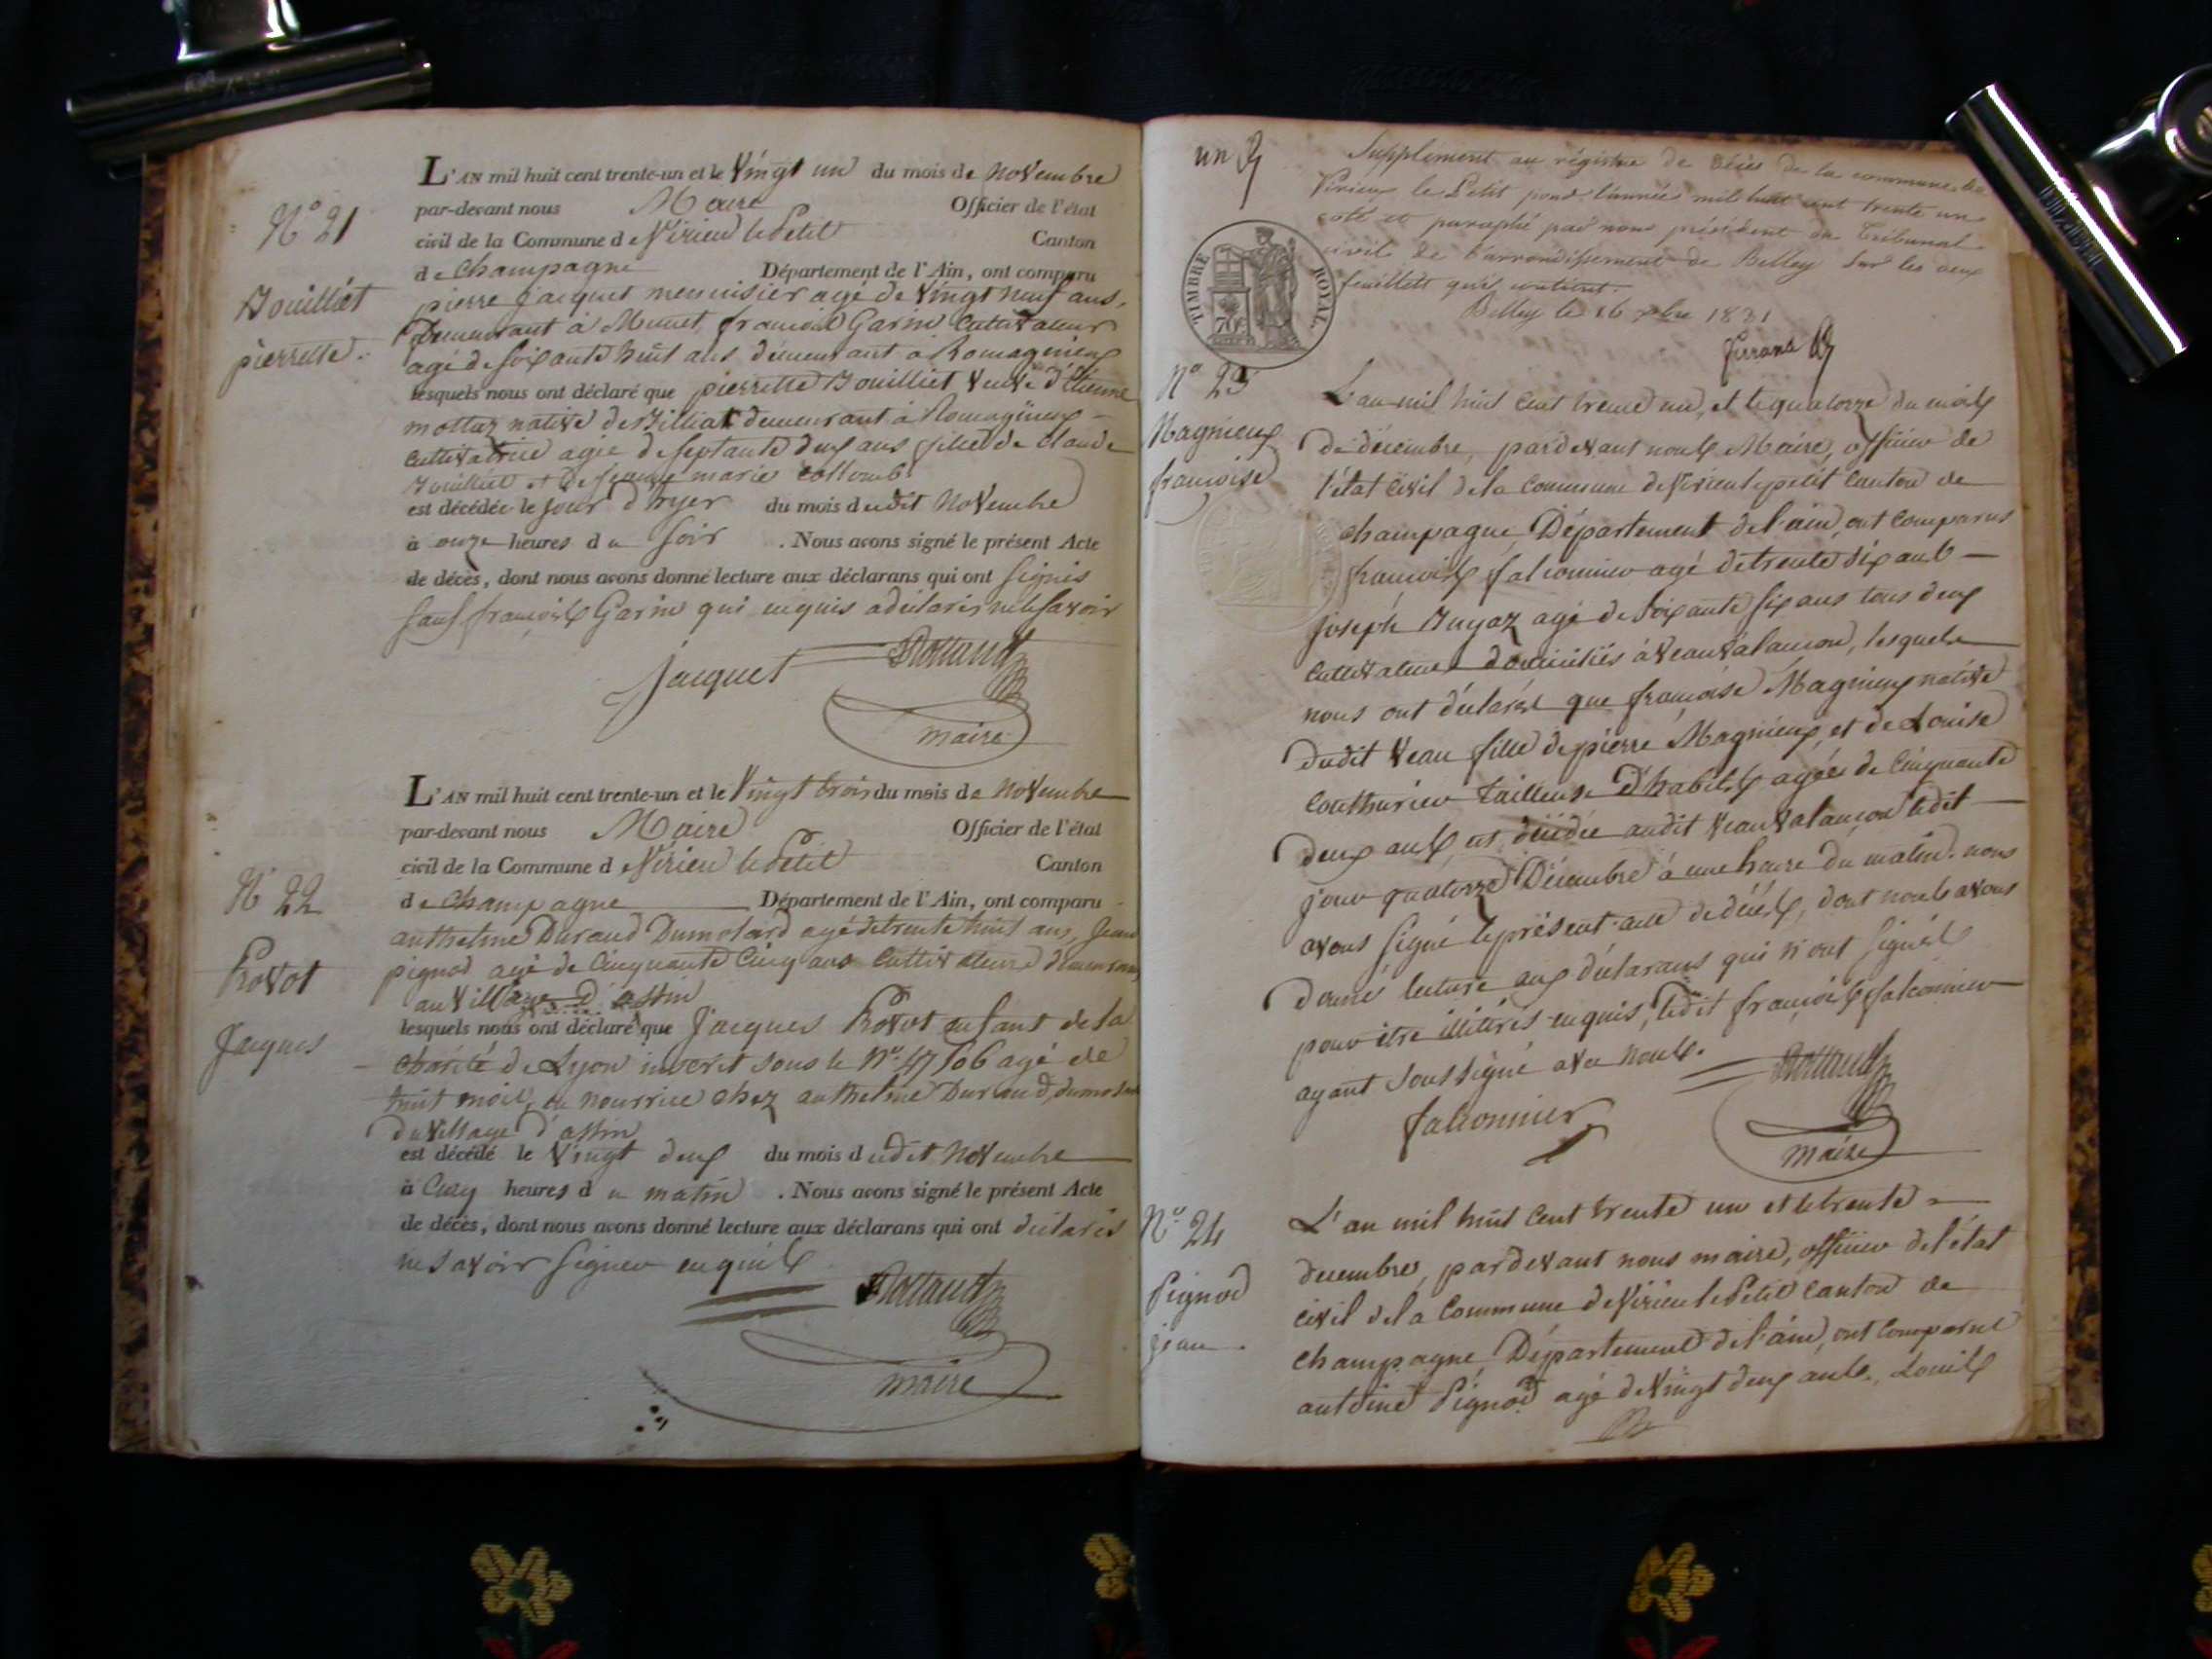 N° 21
Bouilliet
pierrette.
L'AN mil huit cent trente-un et le Vingt un du mois de Novembre
par-devant nous Maire Officier de l'état
civil de la Commune de Virieu le Petit Canton
de Champagne Département de l'Ain, ont comparu
pierre jacquet menuisier agé de Vingt neuf ans,
Demeurant à Munet, francois Garin Cultivateur
agé de soixante huit ans demeurant à Romagnieu
lesquels nous ont déclaré que pierrette Bouilliet Veuve d'Etienne
mottaz native de Billiat demeurant à Romagnieu
Cultivatrice agée de septante deux ans fille de claude
Bouilliet et de jeanne marie collomb
est décédée le jour d'hyer du mois dudit Novembre
à onze heures du Soir . Nous avons signé le présent Acte
de décès, dont nous avons donné lecture aux déclarans qui ont signés
sauf françois Garin qui enquis a déclarés ne le savoir
jacquet Rottaud
maire
N° 22
Provot
Jacques
L'AN mil huit cent trente-un et le Vingt trois du mois de Novembre
par-devant nous Maire Officier de l'état
civil de la Commune de Virieu le Petit Canton
de Champagne Département de l'Ain, ont comparu
anthelme Durand Dumolard agé de trente huit ans, Jean
pignod agé de Cinquante Cinq ans Cultivateurs demeurans
au Village d'assin
lesquels nous ont déclaré que Jacques Provot enfant de la
charité de Lyon inscrit sous le N° 47106 agé de
huit mois, en nourrice chez anthelme Durand, dumolard
du Village d'assin
est décédé le Vingt deux du mois dudit Novembre
à Cinq heures du matin . Nous avons signé le présent Acte
de décès, dont nous avons donné lecture aux déclarans qui ont déclarés
ne savoir signer enquis
Rottaud
maire
un
Supplement au régistre de décès de la commune de
Virieu le Petit pour l'année mil huit cent trente un
coté et paraphé par nous président du Tribunal
civil de l'arrondissement de Belley sur les deux
feuillets qu'il contient.
Belley le 16 xbre 1831
TIMBRE ROYAL
70
N° 23
Magnieux
francoise
L'an mil huit Cent trente un, et le quatorze du mois
de décembre, pardevant nous Maire, officier de
l'état Civil de la Commune de Virieu le petit Canton de
Champagne Département de l'ain, ont Comparus
françois falconnier agé de trente six ans
joseph Jugaz agé de soixante six ans tous deux
Cultivateurs domiciliés à Veauvalancon, lesquels
nous ont déclarés que francoise Magnieux native
dudit Veau fille de pierre Magnieux et de Louise
Couthurier tailleuse d'habits agée de Cinquante
deux ans est décédée audit Veauvalançon ledit
jour quatorze Décembre à une heure du matin. nous
avons signé le présent acte de décès, dont nous avons
donné lecture aux déclarans qui n'ont signés
pour être illitérés enquis, ledit françois falconnier
ayant soussigné avec nous.
falconnier Rottaud
maire
N° 24
Pignod
jean.
L'an mil huit Cent trente un et le trente
decembre, pardevant nous maire, officier de l'état
Civil de la Commune de Virieu le Petit Canton de
Champagne Département de l'ain, ont Comparus
antoine Pignod agé de Vingt deux ans, Louis